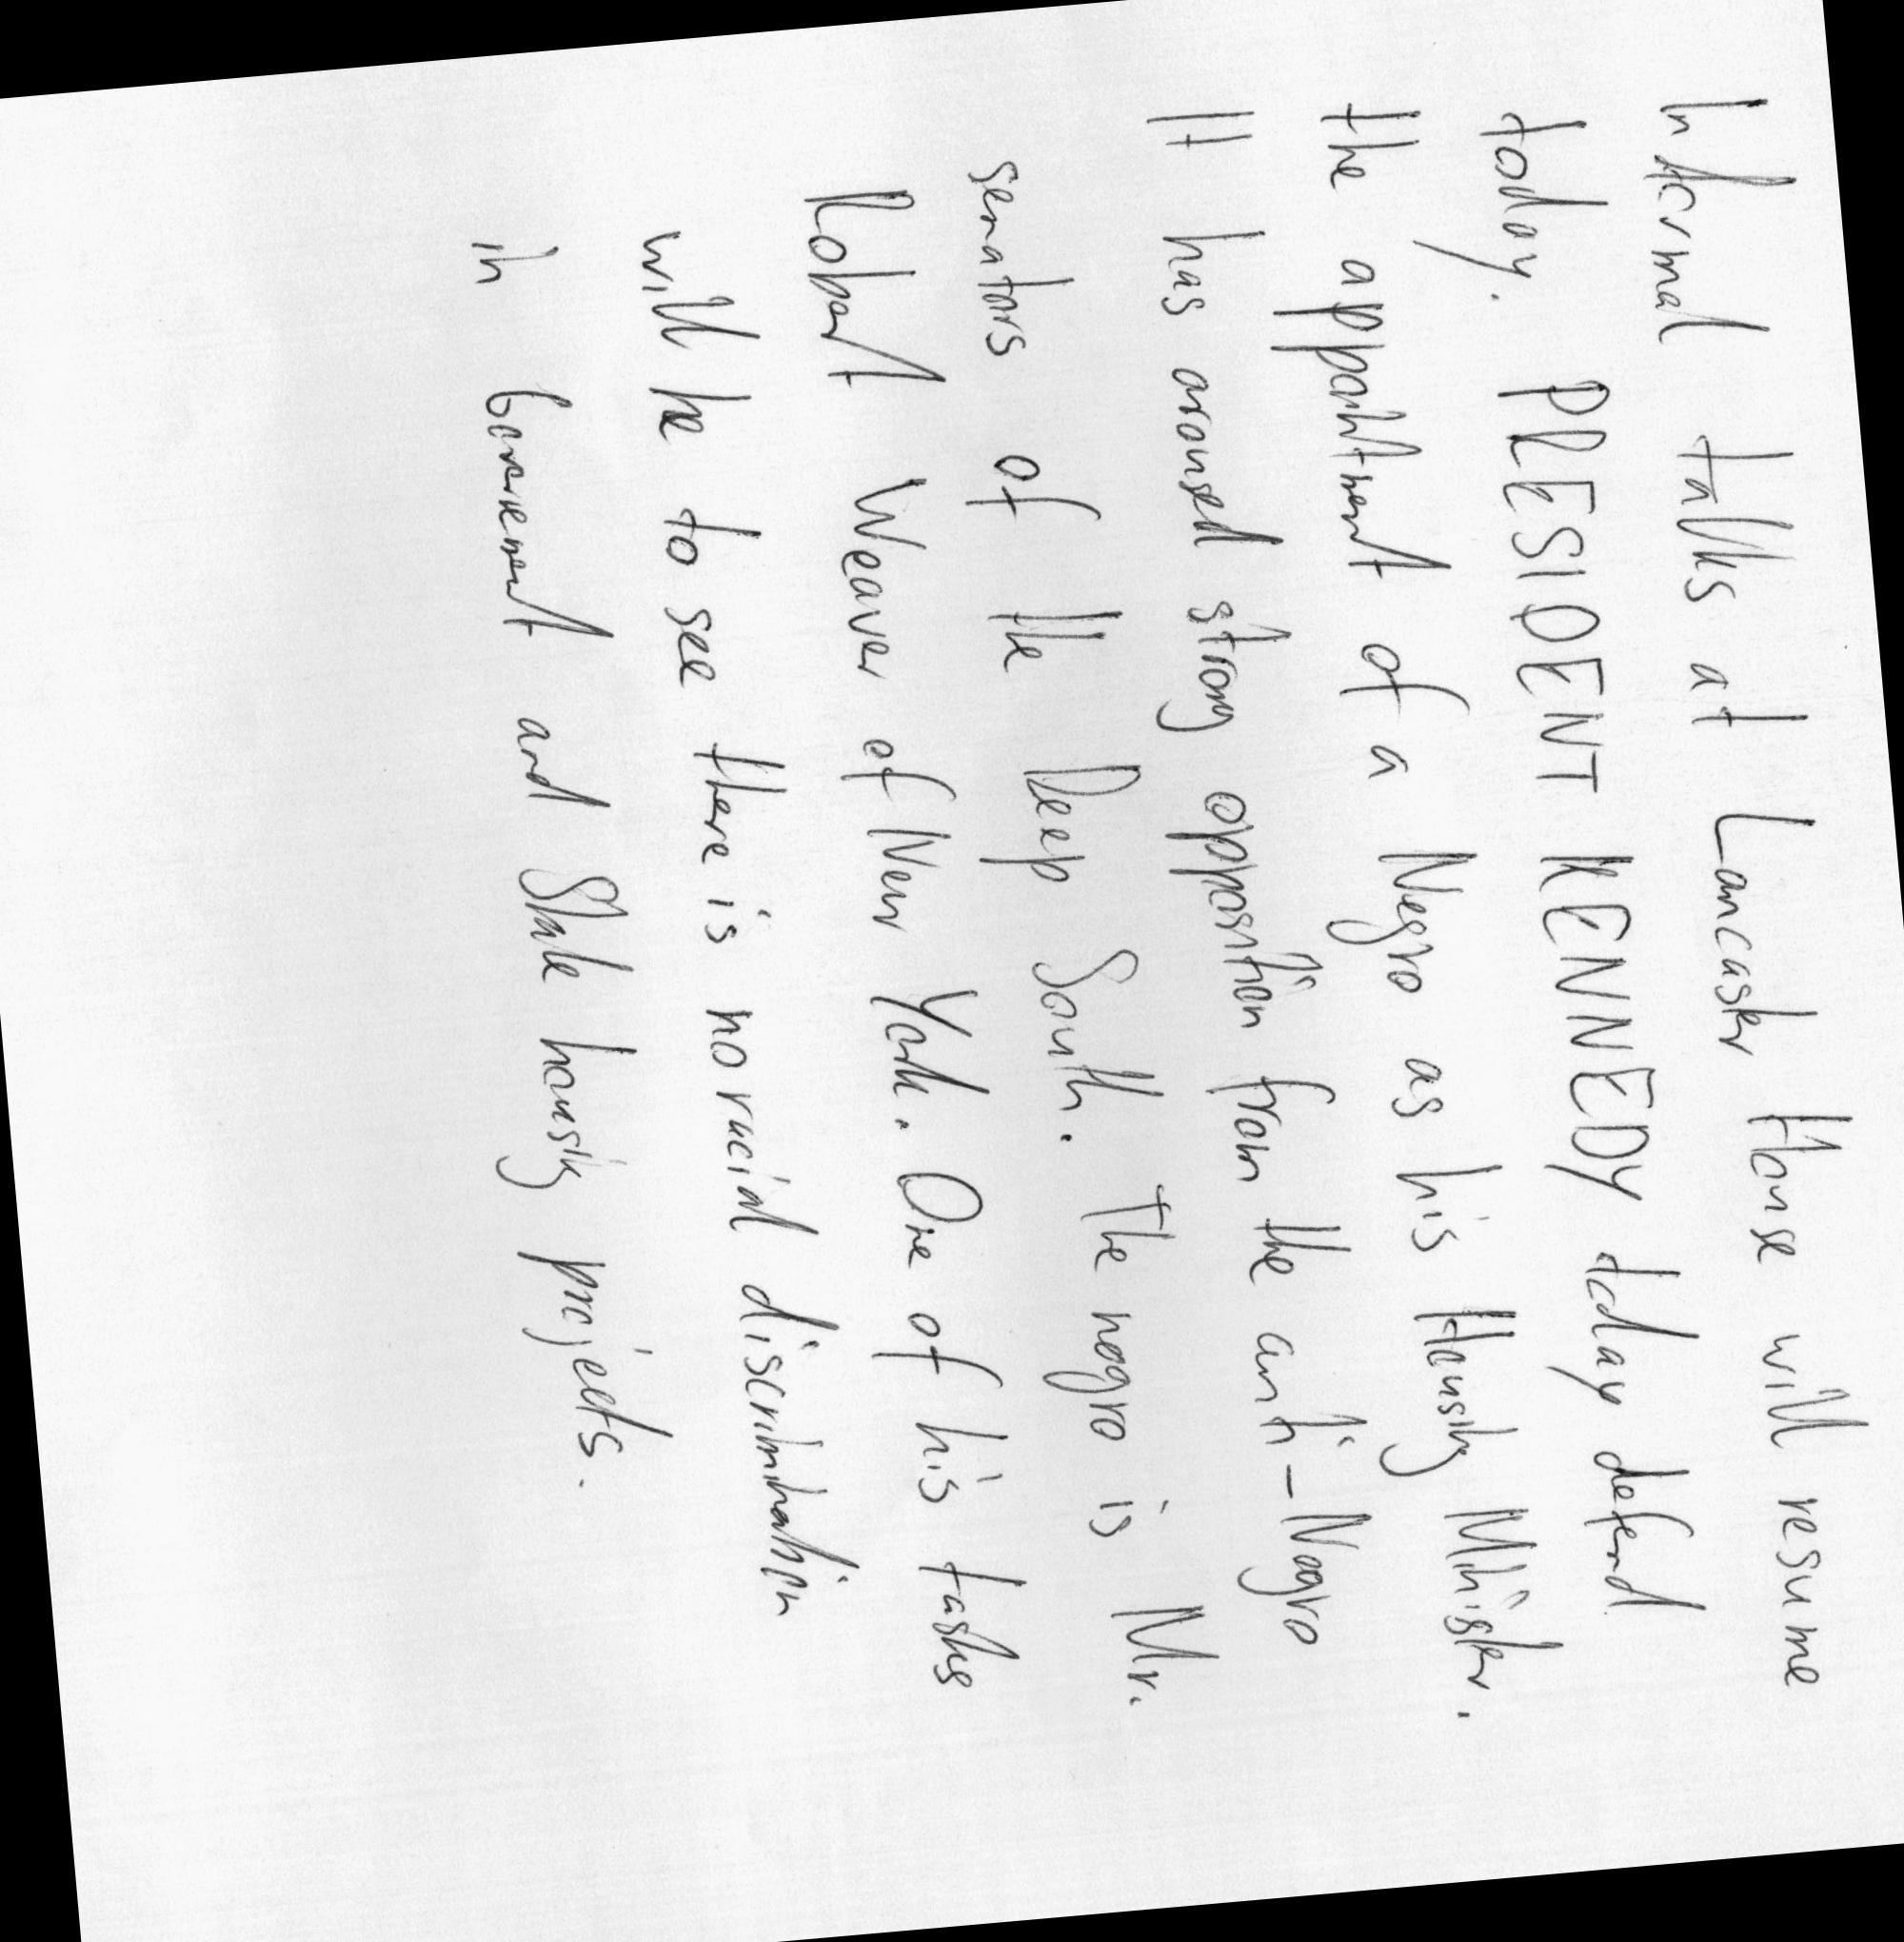 Informal talks at Lancaster House will resume
today. PRESIDENT KENNEDY today defend
the appointment of a Negro as his Housing Minister.
It has aroused strong opposition from the anti-Nagro
senators of the Deep South. The nagro is Mr.
Robert Weaver of New York. One of his tasks
will be to see there is no racial discrimination
in Government and State housing projects.